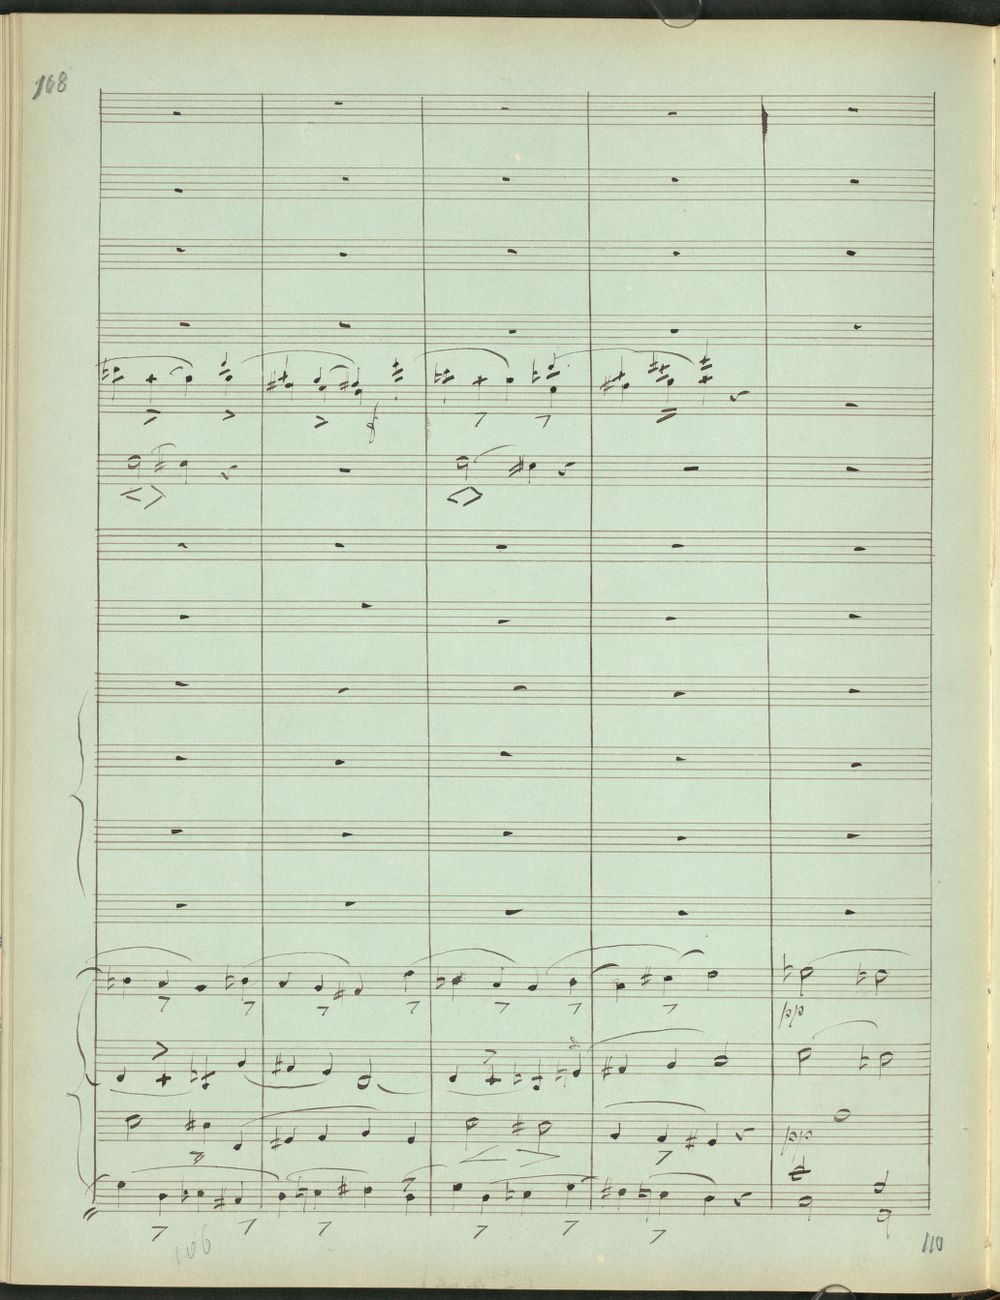 168
pp
pp
106
110